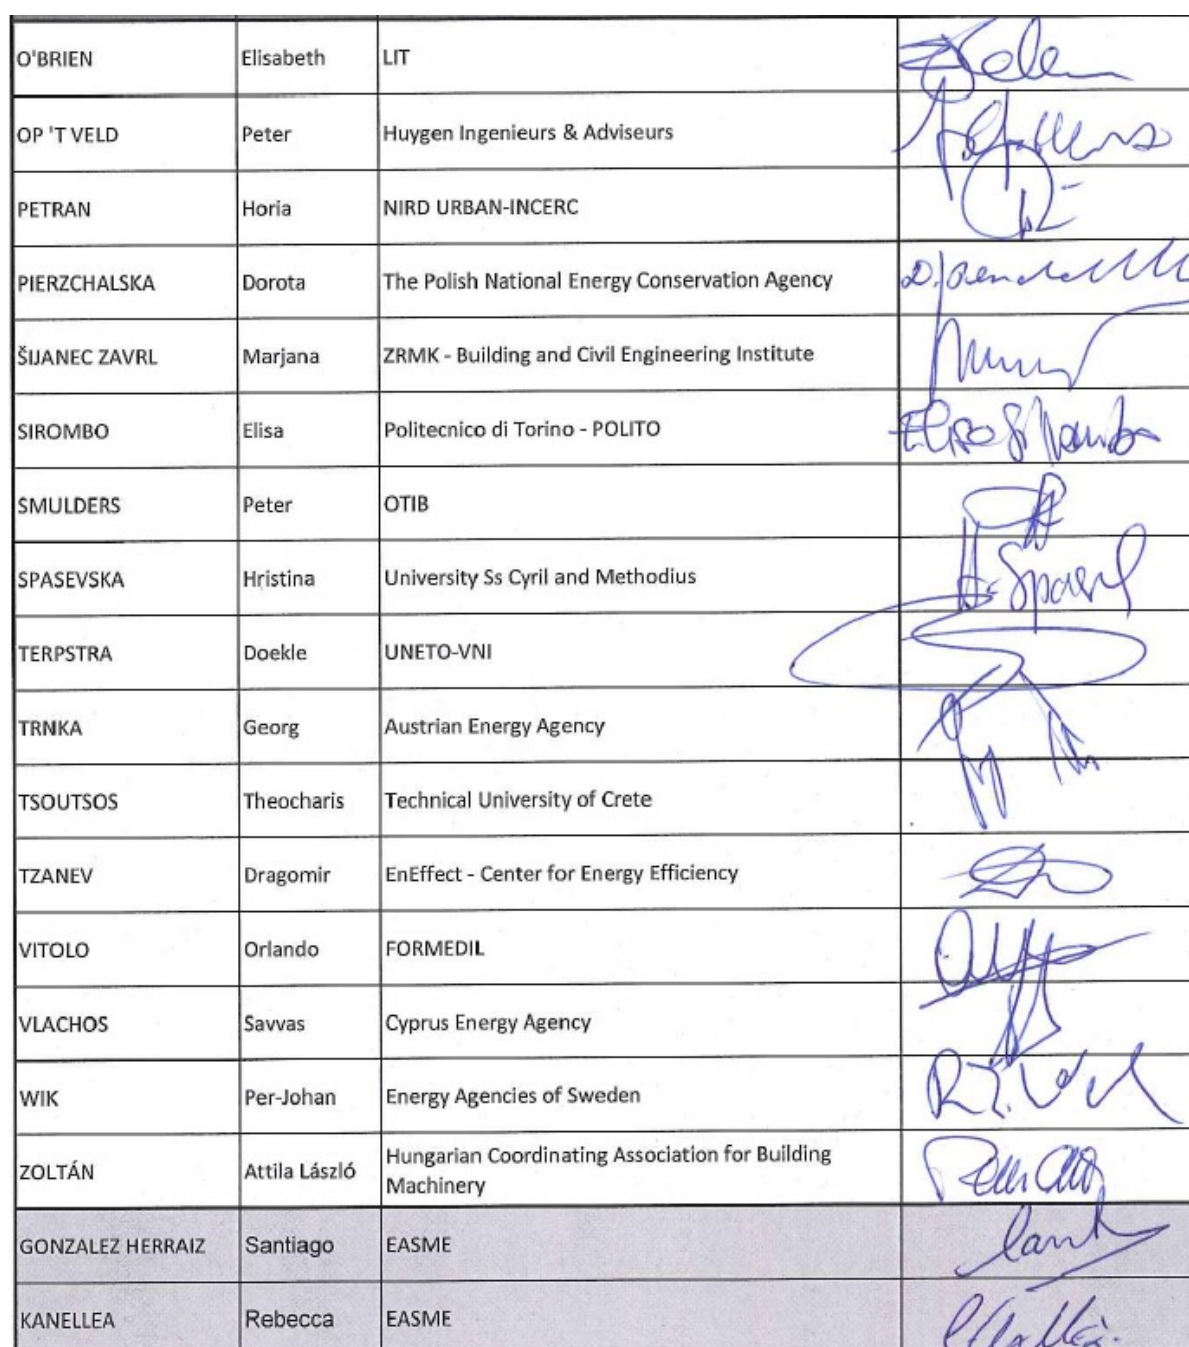 O'BRIEN Elisabeth LIT
OP 'T VELD Peter Huygen Ingenieurs & Adviseurs
PETRAN Horia NIRD URBAN-INCERC
PIERZCHALSKA Dorota The Polish National Energy Conservation Agency
ŠIJANEC ZAVRL Marjana ZRMK - Building and Civil Engineering Institute
SIROMBO Elisa Politecnico di Torino - POLITO
SMULDERS Peter OTIB
SPASEVSKA Hristina University Ss Cyril and Methodius
TERPSTRA Doekle UNETO-VNI
TRNKA Georg Austrian Energy Agency
TSOUTSOS Theocharis Technical University of Crete
TZANEV Dragomir EnEffect - Center for Energy Efficiency
VITOLO Orlando FORMEDIL
VLACHOS Savvas Cyprus Energy Agency
WIK Per-Johan Energy Agencies of Sweden
ZOLTÁN Attila László Hungarian Coordinating Association for Building
Machinery
GONZALEZ HERRAIZ Santiago EASME
KANELLEA Rebecca EASME